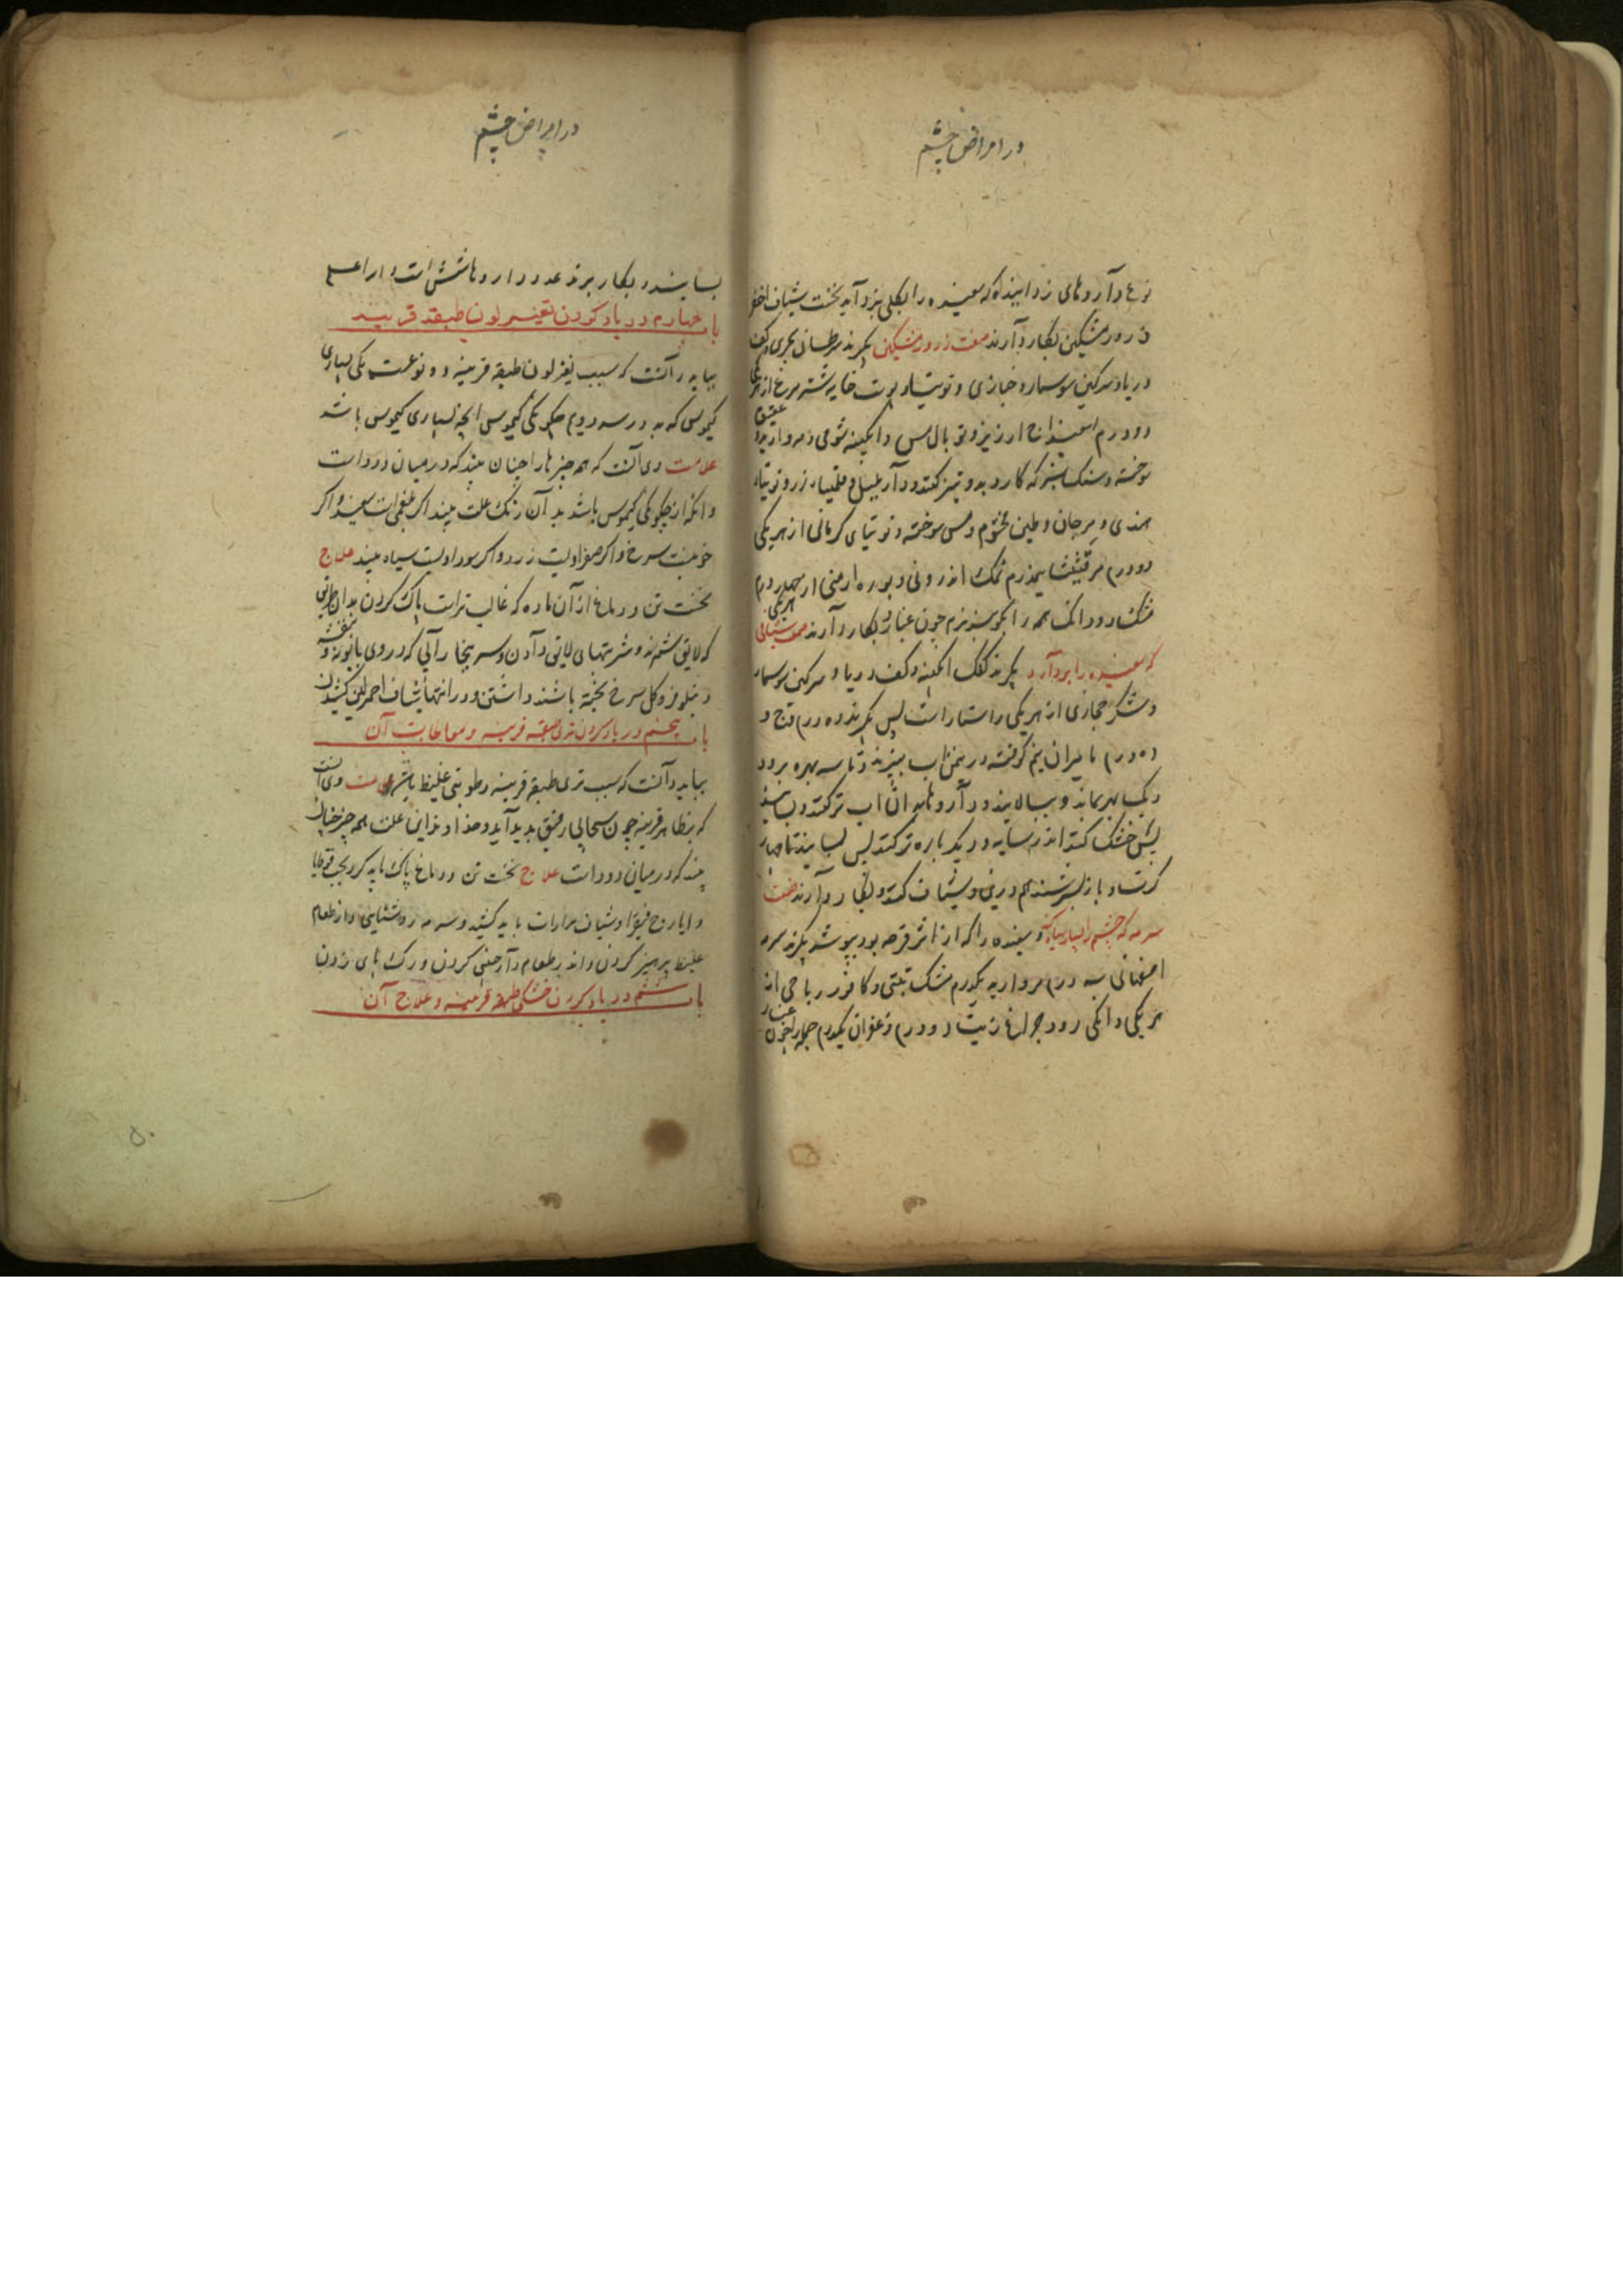 در امراض چشم
نوع داروهای زداینده که سفیده را بکلی بزداید نخست شیاف اخضر
ذرور مشکین بکار دارند صفت ذرور مشکین بگیرند سرطان بحری و کف
دریا و سرکین سوسمار و خبازی و توتیا و پوست خایه شتر مرغ از هر یکی
دو درم اسفیداج ارزیز و توبال مس و ابکینه شومی و مروارید
عتیق
سوخته و سنک سبز که کارد بدو تیز کنند و دار پلپل و قلیمیا زر و توتیا
هندی و مرجان و طین مختوم و مس سوخته و توتیای کرمانی از هر یکی
دو درم مرقشیثا یکدرم نمک اندرونی و بوره ارمنی از هر یکی چهار درم
مشک دو دانک همه را بکوبند نرم چون غبار و بکار دارند صفت شیافی
که سفیده را بردارد بگیرند کفک ابکینه و کف دریا و سرکین سوسمار
و شکر حجازی از هر یکی راستا راست پس بگیرند ده درم وج و
ده درم مامیران نیم کوفته در یمن اب بپزند تا سه بهره برود
و یک بهر بماند و ببالایند و داروها به ان اب تر کنند و بسایند
پس خشک کنند اندر سایه و دیگر باره تر کنند پس بسایند تا چهار
کرت و باز بسرشند هم درین و شیاف کنند و بکار دارند صفت
سرمه که چشم را سیاه کند و سفیده را که از اثر قرحه بود بپوشد بگیرند سرمه
اصفهانی سه درم مروارید یکدرم مشک تبتی و کافور رباحی از
هر یکی دانکی دود چراغ زیت دو درم زعفران یکدرم جمله را چون غبار
در امراض چشم
بسایند و بکار برند عدد داروها شش است والله اعلم
باب چهارم در یاد کردن تغییر لون طبقه قرنیه
بباید دانست که سبب تغیر لون طبقه قرنیه دو نوعست یکی بسیاری
کیموس که بدو رسد دوم چگونگی کیموس انچه بسیاری کیموس باشد
علامت وی آنست که همه چیزها را چنان بیند که در میان دود است
و انکه از چگونگی کیموس باشد بدان رنک علت بیند اگر بلغمی است سفید و اگر
خونیست سرخ و اگر صفراویست زرد و اگر سوداویست سیاه بیند علاج
نخست تن و دماغ از آن ماده که غالب تر است پاک کردن بدان طریق
که لایق شمرند و شربتهای لایق دادن و سر ببخار آبی که در وی بابونه و بنفشه
و نیلوفر و کل سرخ پخته باشند داشتن و در انتها شیاف احمر لین کشیدن
باب پنجم در یاد کردن تری طبقه قرنیه و معالجات آن
بباید دانست که سبب تری طبقه قرنیه رطوبتی غلیظ باشد علامت وی آنست
که بظاهر قرنیه چون سحابی رقیق بدید آید و خداوند این علت همه چیز چنان
بیند که در میان دود است علاج نخست تن و دماغ پاک باید کرد بحب قوقایا
و ایارج فیقرا و شیاف مرارات باید کشید و سرمه روشنایی و از طعام
غلیظ پرهیز کردن و اندر طعام دارچینی کردن و رک پای زدن
باب ششم در یاد کردن خشکی طبقه قرنیه و علاج آن
۵۰